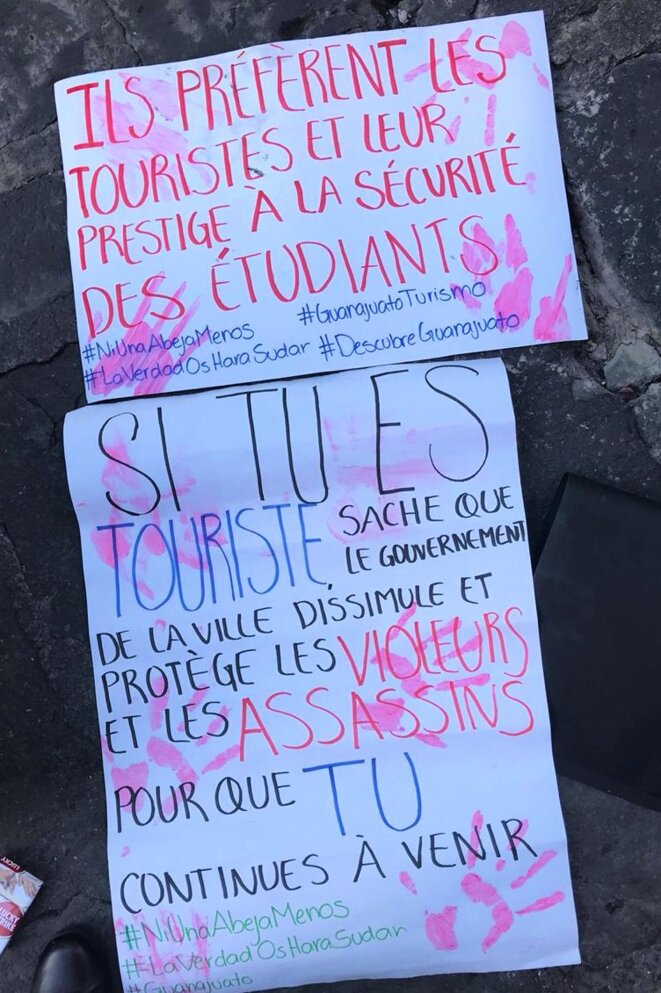 ILS PRÉFÈRENT LES
TOURISTES ET LEUR
PRESTIGE À LA SÉCURITÉ
DES ÉTUDIANTS
#GuanajuatoTurismo
#NiUnaAbejaMenos
#LaVerdadOsHaraSudar #DescubreGuanajuato
SI TU ES
TOURISTE, SACHE QUE
LE GOUVERNEMENT
DE LA VILLE DISSIMULE ET
PROTÈGE LES VIOLEURS
ET LES ASSASSINS
POUR QUE TU
CONTINUES À VENIR
#NiUnaAbejaMenos
#LaVerdadOsHaraSudar
#Guanajuato
LUCKY
STRIKE